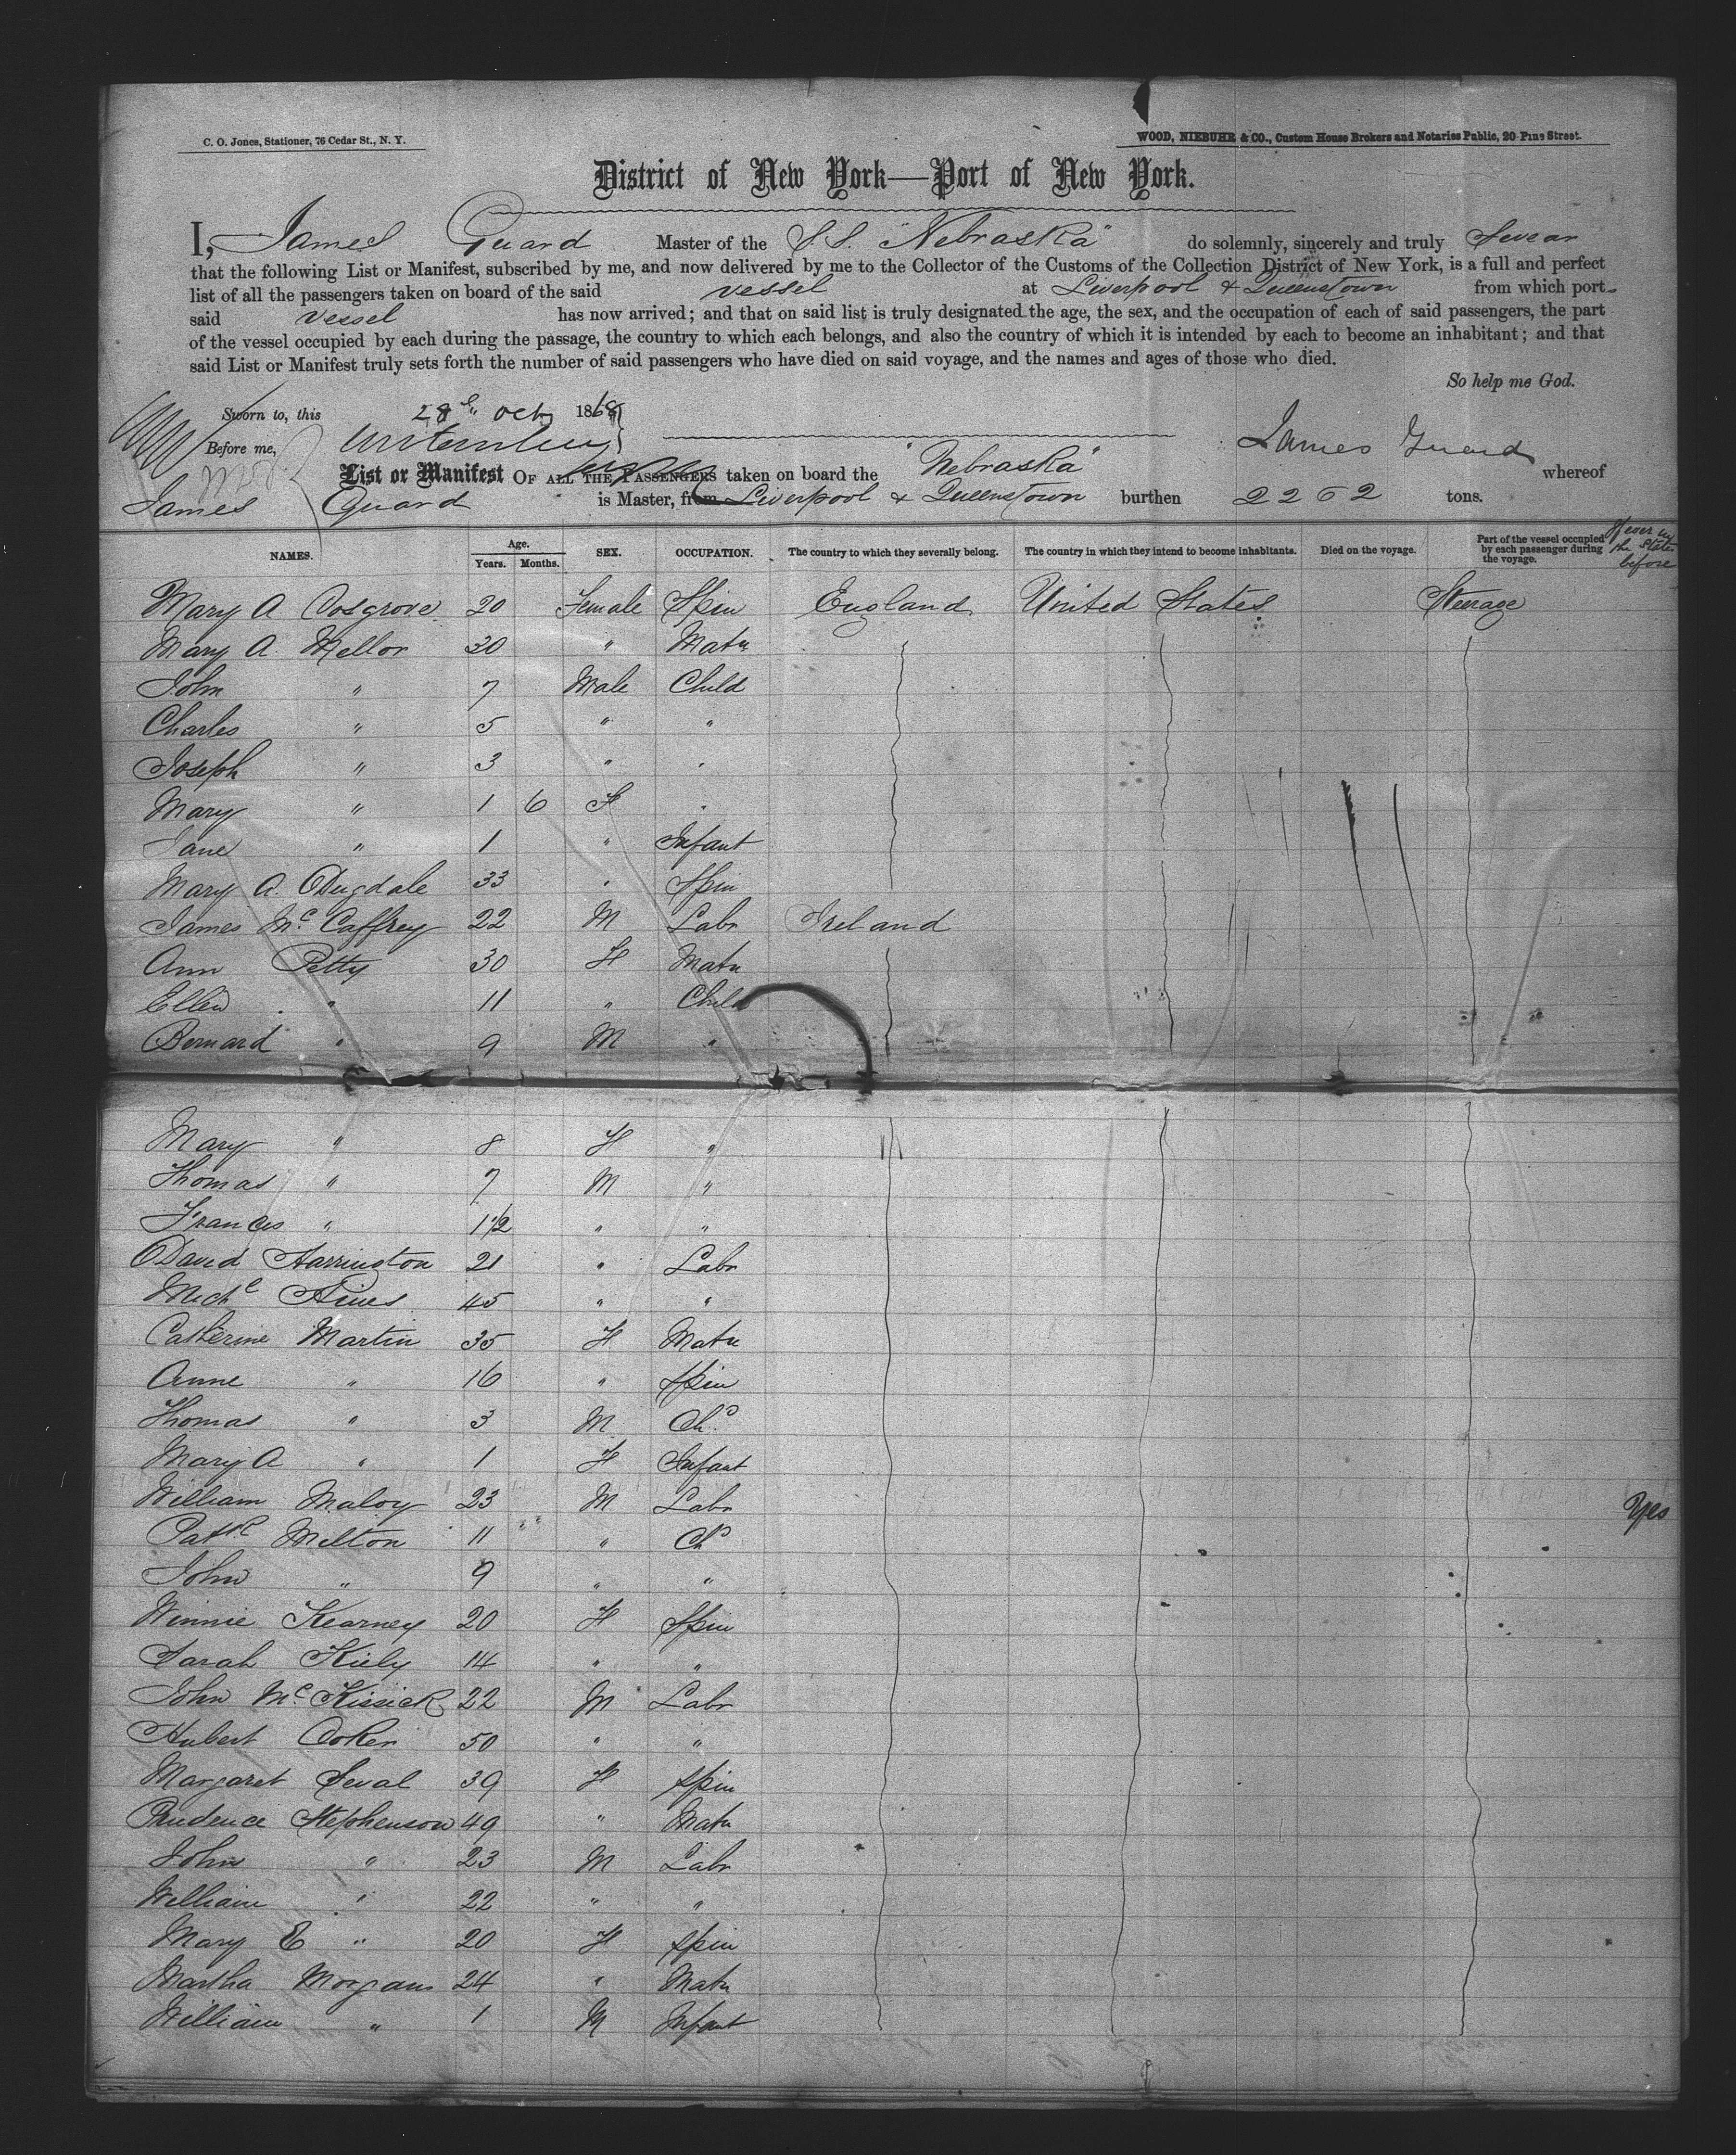 C. O. Jones, Stationer, 76 Cedar St., N. Y.
WOOD, NIEBUHR & CO., Custom House Brokers and Notaries Public, 20 Pine Street.
District of New York—Port of New York.
I, James Guard Master of the S.S. "Nebraska" do solemnly, sincerely and truly Swear
that the following List or Manifest, subscribed by me, and now delivered by me to the Collector of the Customs of the Collection District of New York, is a full and perfect
list of all the passengers taken on board of the said vessel at Liverpool & Queenstown from which ports
said vessel has now arrived; and that on said list is truly designated the age, the sex, and the occupation of each of said passengers, the part
of the vessel occupied by each during the passage, the country to which each belongs, and also the country of which it is intended by each to become an inhabitant; and that
said List or Manifest truly sets forth the number of said passengers who have died on said voyage, and the names and ages of those who died.
So help me God.
Sworn to, this 28th Oct 1868
Before me, James Guard
List or Manifest OF ALL THE PASSENGERS taken on board the "Nebraska" whereof
James Guard is Master, from Liverpool & Queenstown burthen 2262 tons.
NAMES. Age. Years. Months. SEX. OCCUPATION. The country to which they severally belong. The country in which they intend to become inhabitants. Died on the voyage. Part of the vessel occupied by each passenger during the voyage. If ever in the States before
Mary A Cosgrove 20 Female Spin England United States Steerage
Mary A. Mellor 30 " Matn
John " 7 Male Child
Charles " 5 " "
Joseph " 3 " "
Mary " 1 6 F "
Jane " 1 " Infant
Mary A. Dugdale 33 " Spin
James McCaffrey 22 M Labr Ireland
Ann Petty 30 F Matn
Ellen " 11 " Child
Bernard " 9 M "
Mary " 8 F "
Thomas " 7 M "
Frances " 1 1/2 " "
David Harrington 21 " Labr
Michl 45 " "
Catherine Martin 35 F Matn
Anne " 16 " Spin
Thomas " 3 M Chd
Mary A " 1 F Infant
William Maloy 23 M Labr Yes
Patk Melton 11 " Chd
John " 9 " "
Winnie Kearney 20 F Spin
Sarah Kiely 14 " "
John McKissick 22 M Labr
Hubert Coker 50 " "
Margaret Seval 39 F Spin
Prudence Stephenson 49 " Matn
John " 23 M Labr
William " 22 " "
Mary E " 20 F Spin
Martha Morgans 24 " Matn
William " 1 M Infant